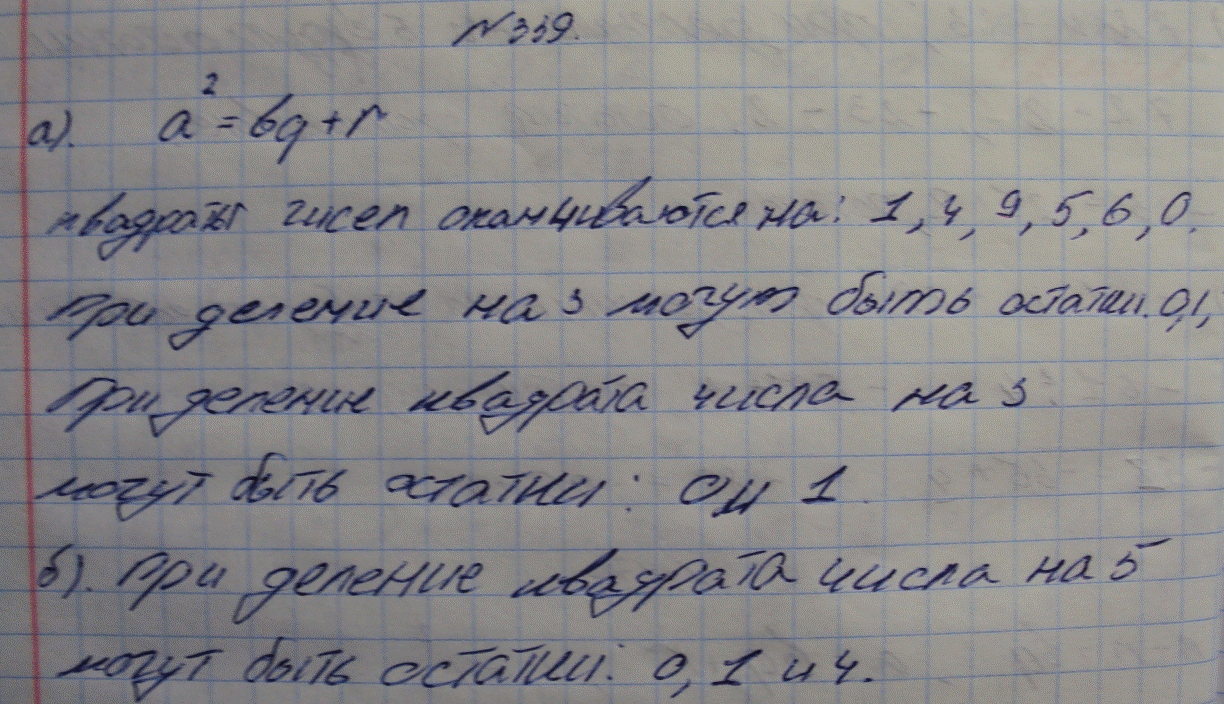 №339.
а). a² = bq + r
квадраты чисел оканчиваются на: 1, 4, 9, 5, 6, 0.
При деление на 3 могут быть остатки. 0,1,
При деление квадрата числа на 3
могут быть остатки: 0 и 1.
б). При деление квадрата числа на 5
могут быть остатки: 0, 1 и 4.